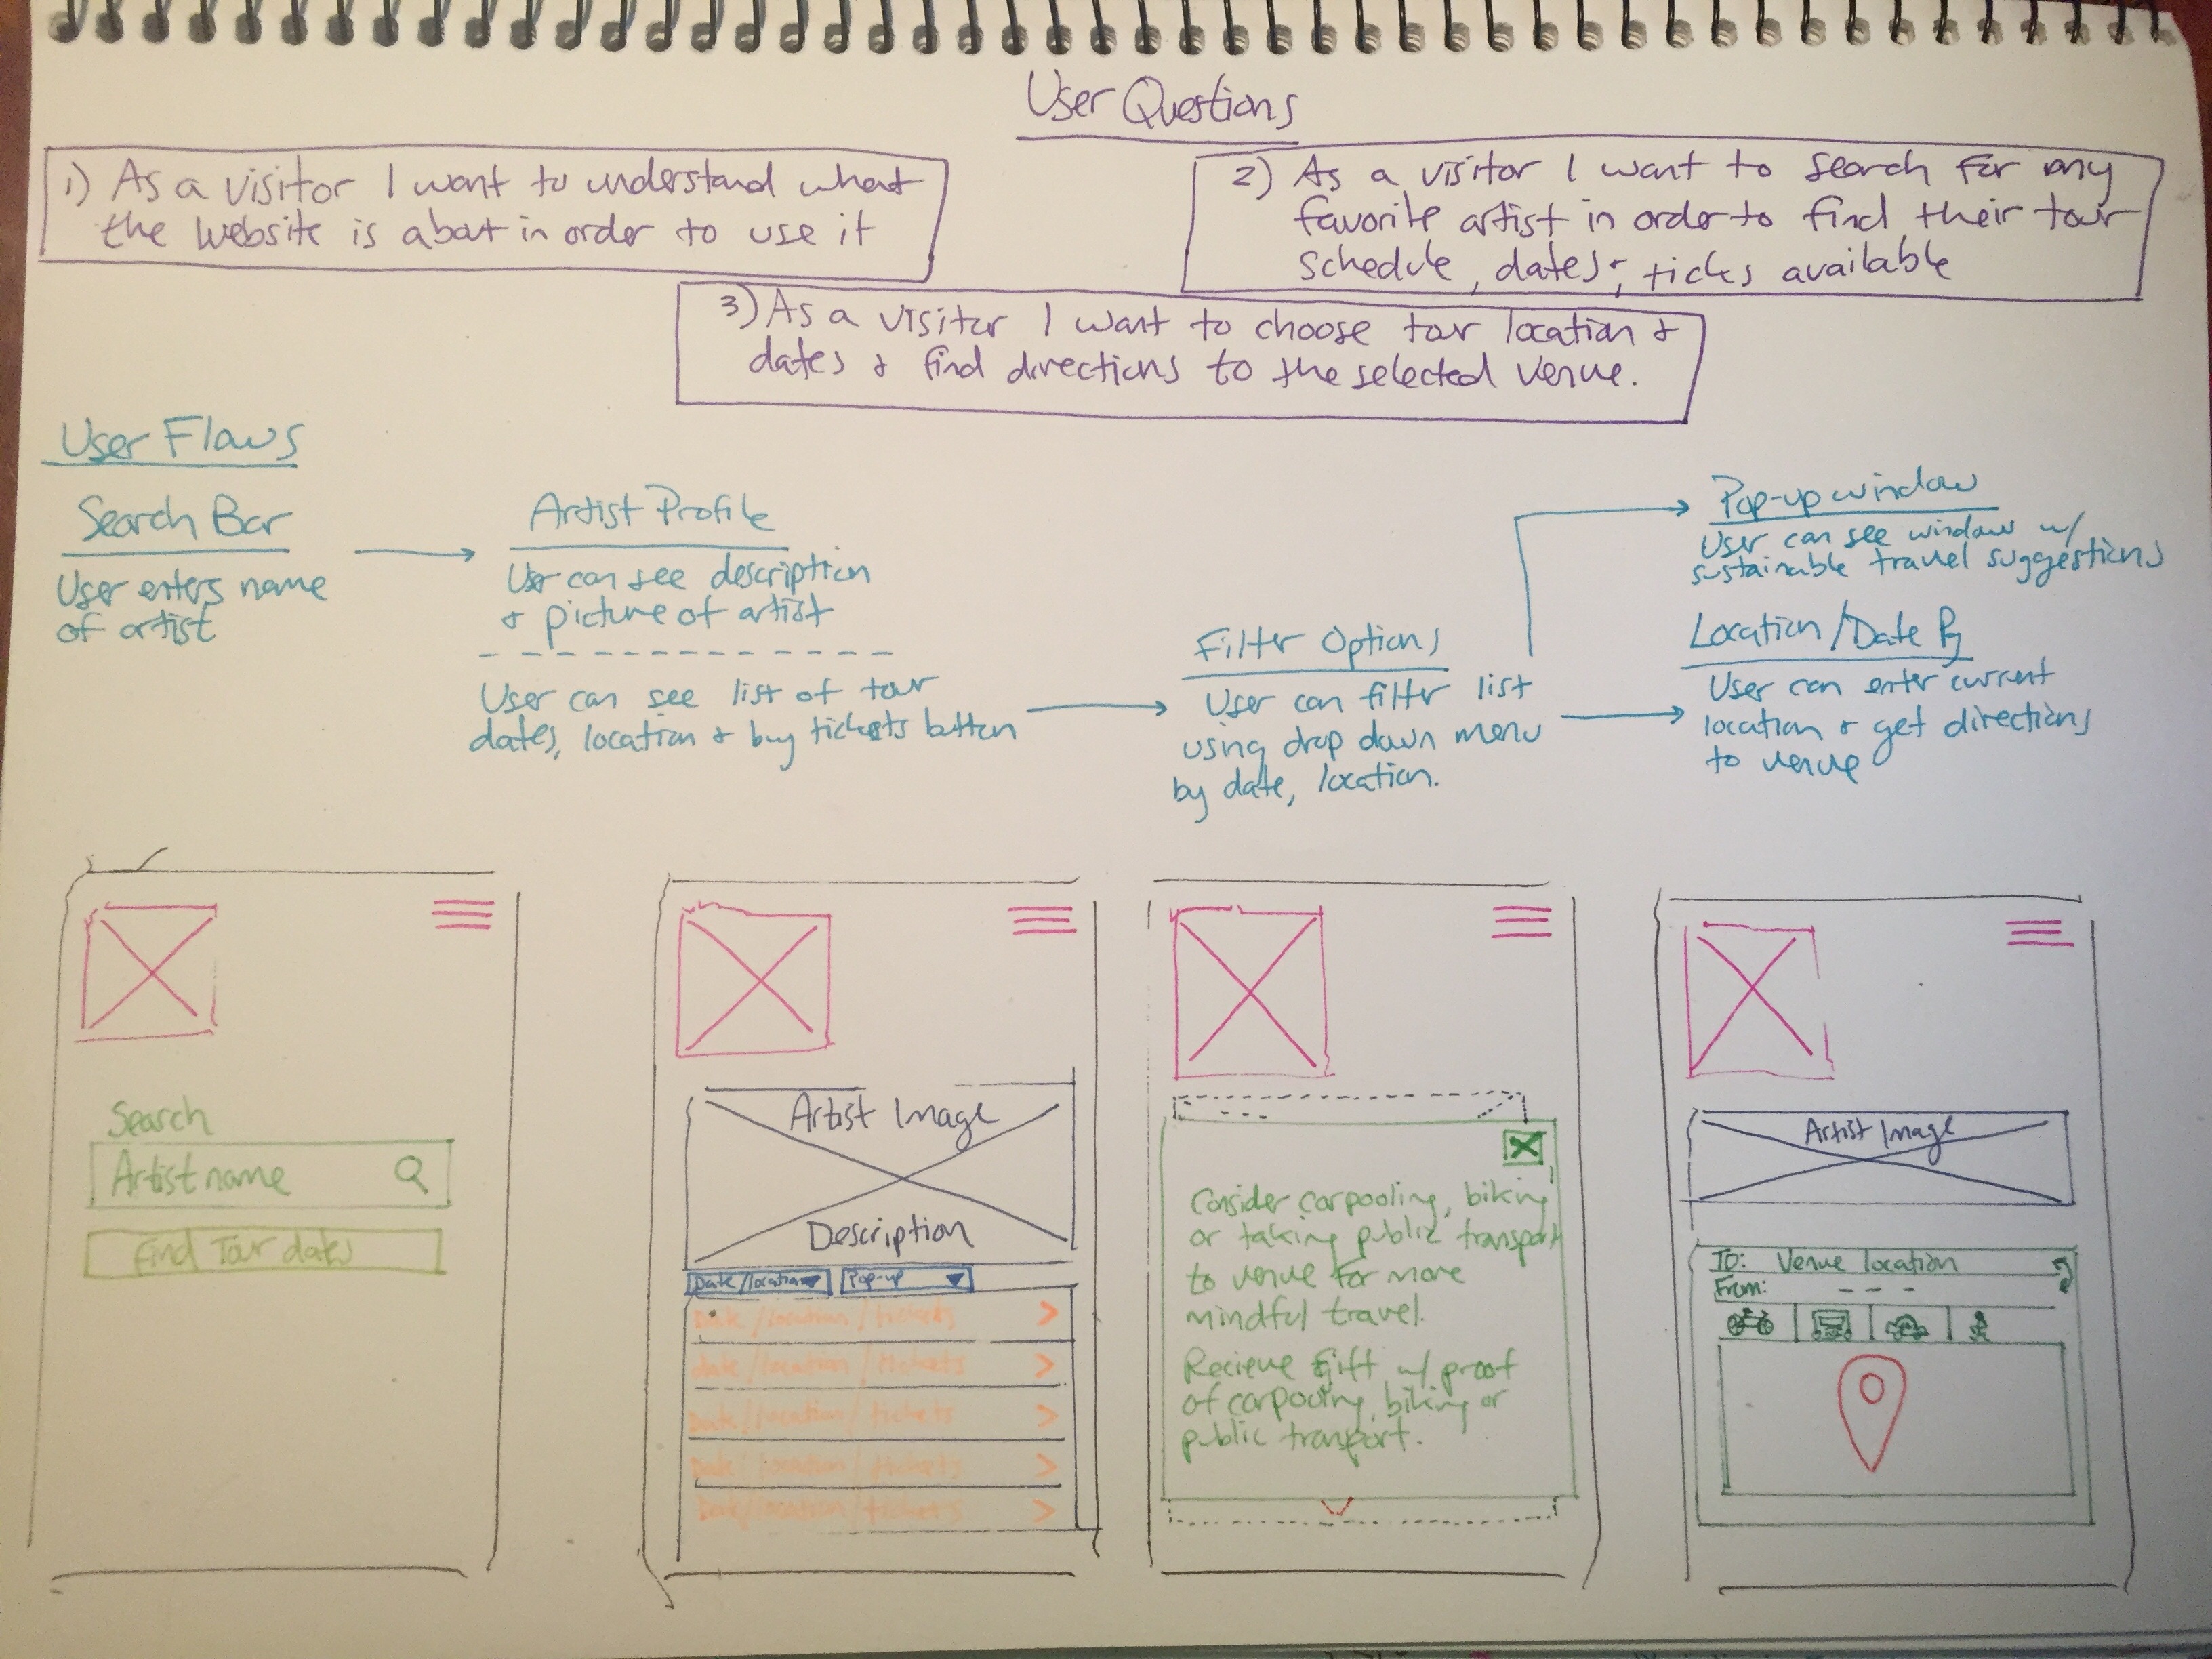 User Questions
1) As a visitor I want to understand what
the website is about in order to use it
2) As a visitor I want to search for my
favorite artist in order to find their tour
schedule, dates, + ticks available
3) As a visitor I want to choose tour location +
dates + find directions to the selected venue.
User Flows
Search Bar
User enters name
of artist
Artist Profile
User can see description
+ picture of artist
User can see list of tour
dates, location + buy tickets button
Filter Options
User can filter list
using drop down menu
by date, location.
Pop-up window
User can see window w/
sustainable travel suggestions
Location/Date Pg
User can enter current
location + get directions
to venue
Search
Artist name
Find Tour dates
Artist Image
Description
Date/location
Pop-up
Date/location/tickets
date/location/tickets
Date/location/tickets
Date/location/tickets
Date/location/tickets
Consider carpooling, biking
or taking public transport
to venue for more
mindful travel.
Recieve Gift w/ proof
of carpooling, biking or
public transport.
Artist Image
To: Venue location
From: - - -